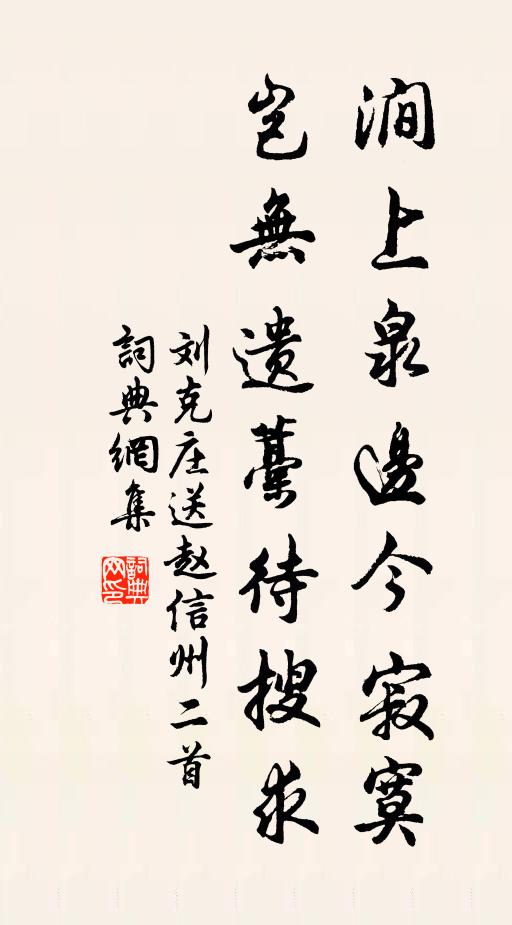 澗上泉邊今寂寞
岂無遺藁待搜求
刘克庄送赵信州二首
詞典網集
詞典网印